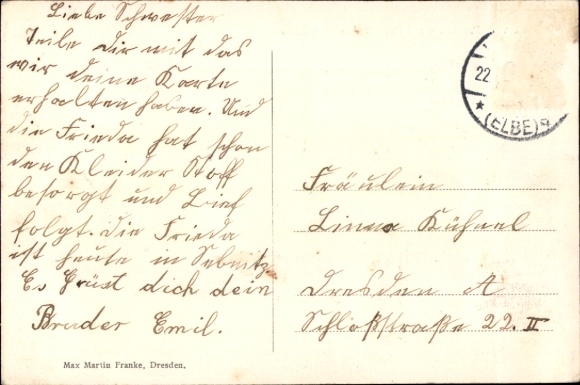 Liebe Schwester
Teile dir mit das
wir deine Karte
erhalten haben. Und
die Frieda hat schon
den Kleider Stoff
besorgt und Brief
folgt. die Frieda
ist heute in Sebnitz
Es Grüst dich dein
Bruder Emil.
Max Martin Franke, Dresden.
22
* (ELBE) 9
Fräulein
Linna Kühnel
Dresden A
Schloßstraße 22. II